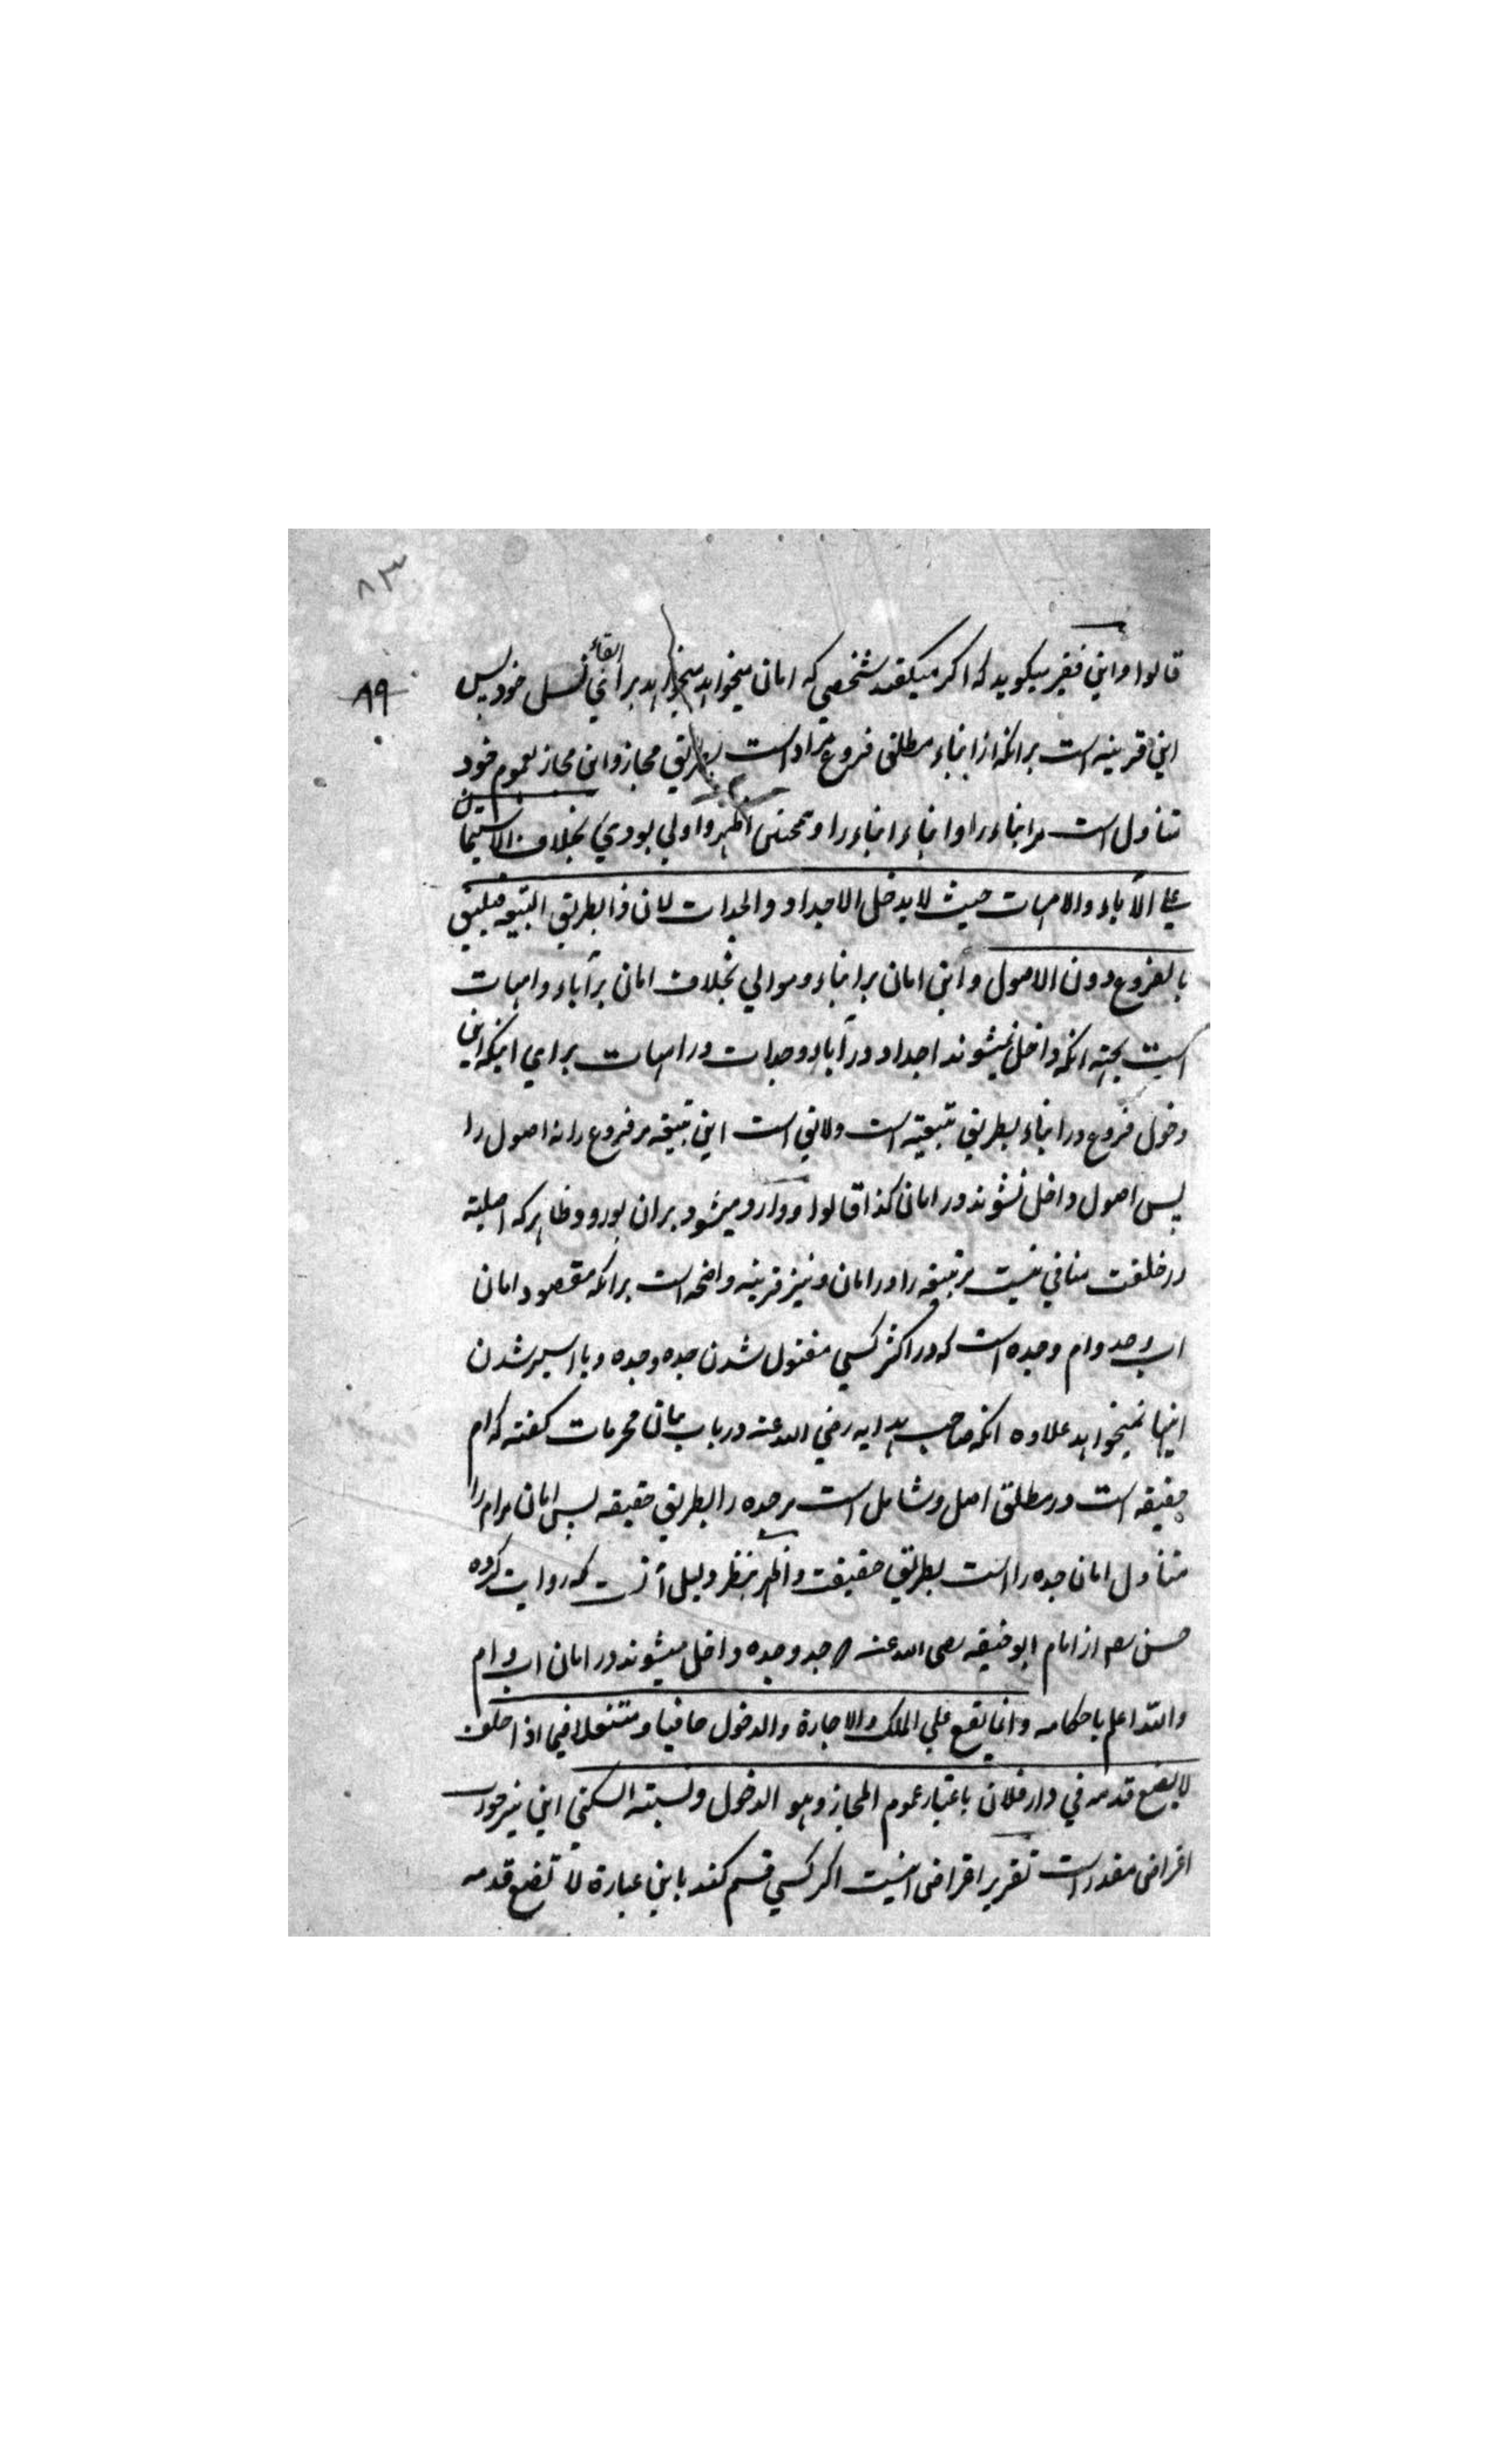 ٨٣
٨٩
قالوا واین فقیر میکوید که اکر میکفتند شخصی که امان میخواهد برای ابقاء نسل خود پس
این قرینه است برانکه از ابناء مطلق فروع مراد است بطریق مجاز واین مجاز بعموم خود
متناول است مر ابناء را و ابناء ابناء را و اظهر واولی بودی بخلاف الاستیمان
علی الآباء والامهات حیث لا یدخل الاجداد والجدات لان ذا بطریق التبعیه فیلیق
بالفروع دون الاصول واین امان بر ابناء وموالی بخلاف امان بر آباء وامهات
است بجهة انکه داخل نمیشوند اجداد در آباء وجدات در امهات برای اینکه این
دخول فروع در ابناء بطریق تبعیة است ولایق است این تبعیة مر فروع را نه اصول را
پس اصول داخل نشوند در امان کذا قالوا ووارد میشود بران بورود ظاهر که اصلیة
در خلقت منافی نیست مر تبعیة را در امان ونیز قرینه واضحه است برانکه مقصود امان
اب وجد وام وجده است که در اکثر کسی مقتول شدن جد وجده ویا اسیر شدن
اینها نمیخواهد علاوه انکه صاحب هدایه رضی الله عنه در باب بیان محرمات کفته که ام
حقیقه است در مطلق اصل وشامل است مر جده را بطریق حقیقه پس امان مر ام را
متناول امان جده را است بطریق حقیقت واظهر بنظر دلیل آنست که روایت کرده
حسن رحمه از امام ابو حنیفه رضی الله عنه که جد وجده داخل میشوند در امان اب وام
والله اعلم باحکامه وانما یقع علی الملک والاجارة والدخول حافیا ومتنعلا فیما اذا حلف
لا یضع قدمه فی دار فلان باعتبار عموم المجاز وهو الدخول ونسبته السکنی این نیز جواب
اعتراض مقدر است تقریر اعتراض اینست اکر کسی قسم کند باین عبارة لا تضع قدمه